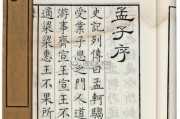 孟子序
史記列傳曰孟軻騶
受業子思之門人道
游事齊宣王宣王不
適梁梁惠王不果所